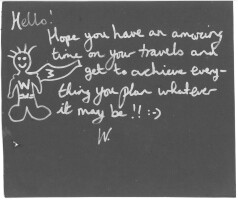 Hello!
Hope you have an amazing
time on your travels and
get to achieve every-
thing you plan whatever
it may be!! :-)
W.
W